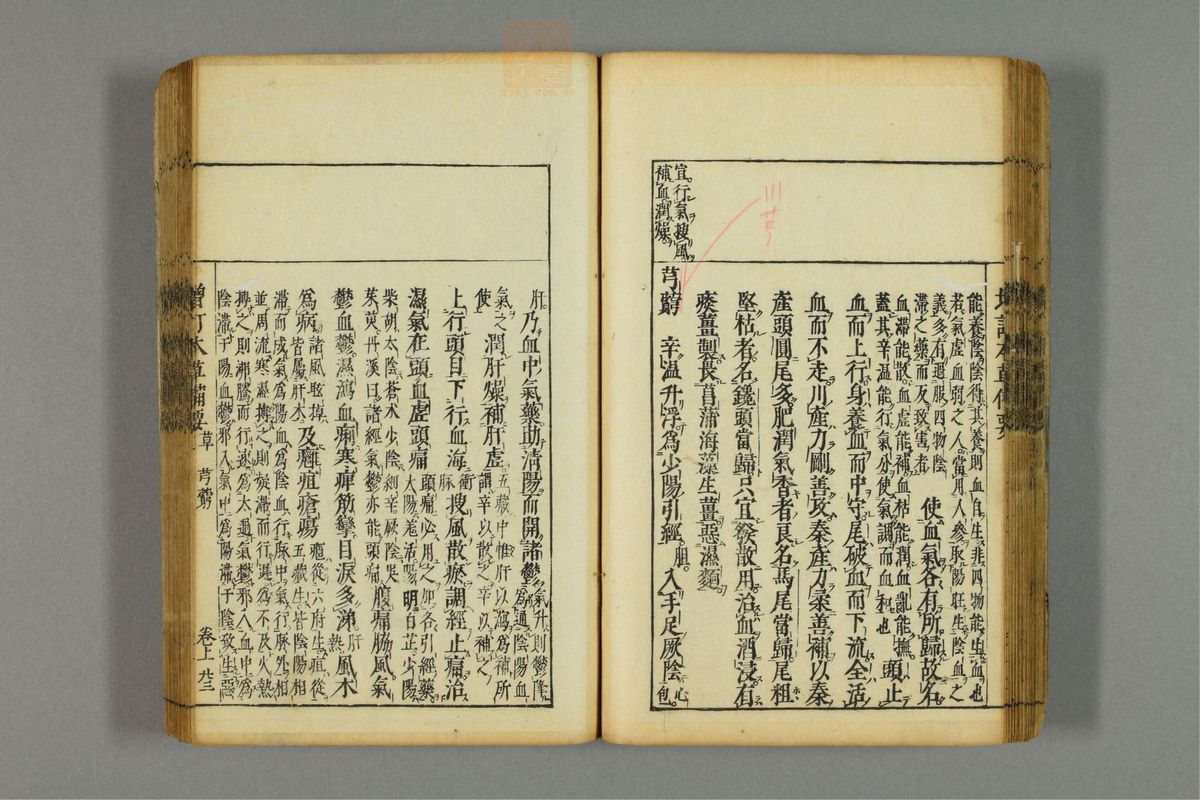 能養陰陰得其養則血自生非四物能生血也
若氣虛血弱之人當用人參取陽旺生陰血之
義多有過服四物陰
滯之藥而反致害者
使血氣各有所歸故名
血滯能散血虛能補血枯能潤血亂能撫
蓋其辛溫能行氣分使氣調而血和也
頭止
血而上行身養血而中守尾破血而下流全活
血而不走川產力剛善攻秦產力柔善補以秦
產頭圓尾多肥潤氣香者良名馬尾當歸尾粗
堅枯者名鑱頭當歸只宜發散用治血酒浸有
痰薑製畏菖蒲海藻生薑惡濕麵
宜行氣搜風
補血潤燥
川芎
芎藭 辛溫升浮為少陽引經膽 入手足厥陰心包
肝乃血中氣藥助清陽而開諸鬱氣升則鬱降
為通陰陽血
氣之
使
潤肝燥補肝虛五藏中惟肝以瀉為補所
謂辛以散之辛以補之
上行頭目下行血海衝脉搜風散瘀調經止痛治
濕氣在頭血虛頭痛頭痛必用之加各引經藥
太陽羌活陽明白芷少陽
柴胡太陰蒼朮少陰細辛厥陰吳
茱萸丹溪曰諸經氣鬱亦能頭痛
腹痛脇風氣
鬱血鬱濕瀉血痢寒痺筋攣目淚多涕肝熱風木
為病諸風眩掉
皆屬肝木及癰疽瘡瘍癰從六府生疽從
五藏生皆陰陽相
滯而成氣為陽血為陰血行脉中氣行脉外相
並周流寒濕搏之則凝滯而行遲為不及火熱
搏之則沸騰而行速為太過氣鬱邪入血中為
陰滯于陽血鬱邪入氣中為陽滯于陰致生惡
增訂本草備要 草 芎藭 卷上 九三